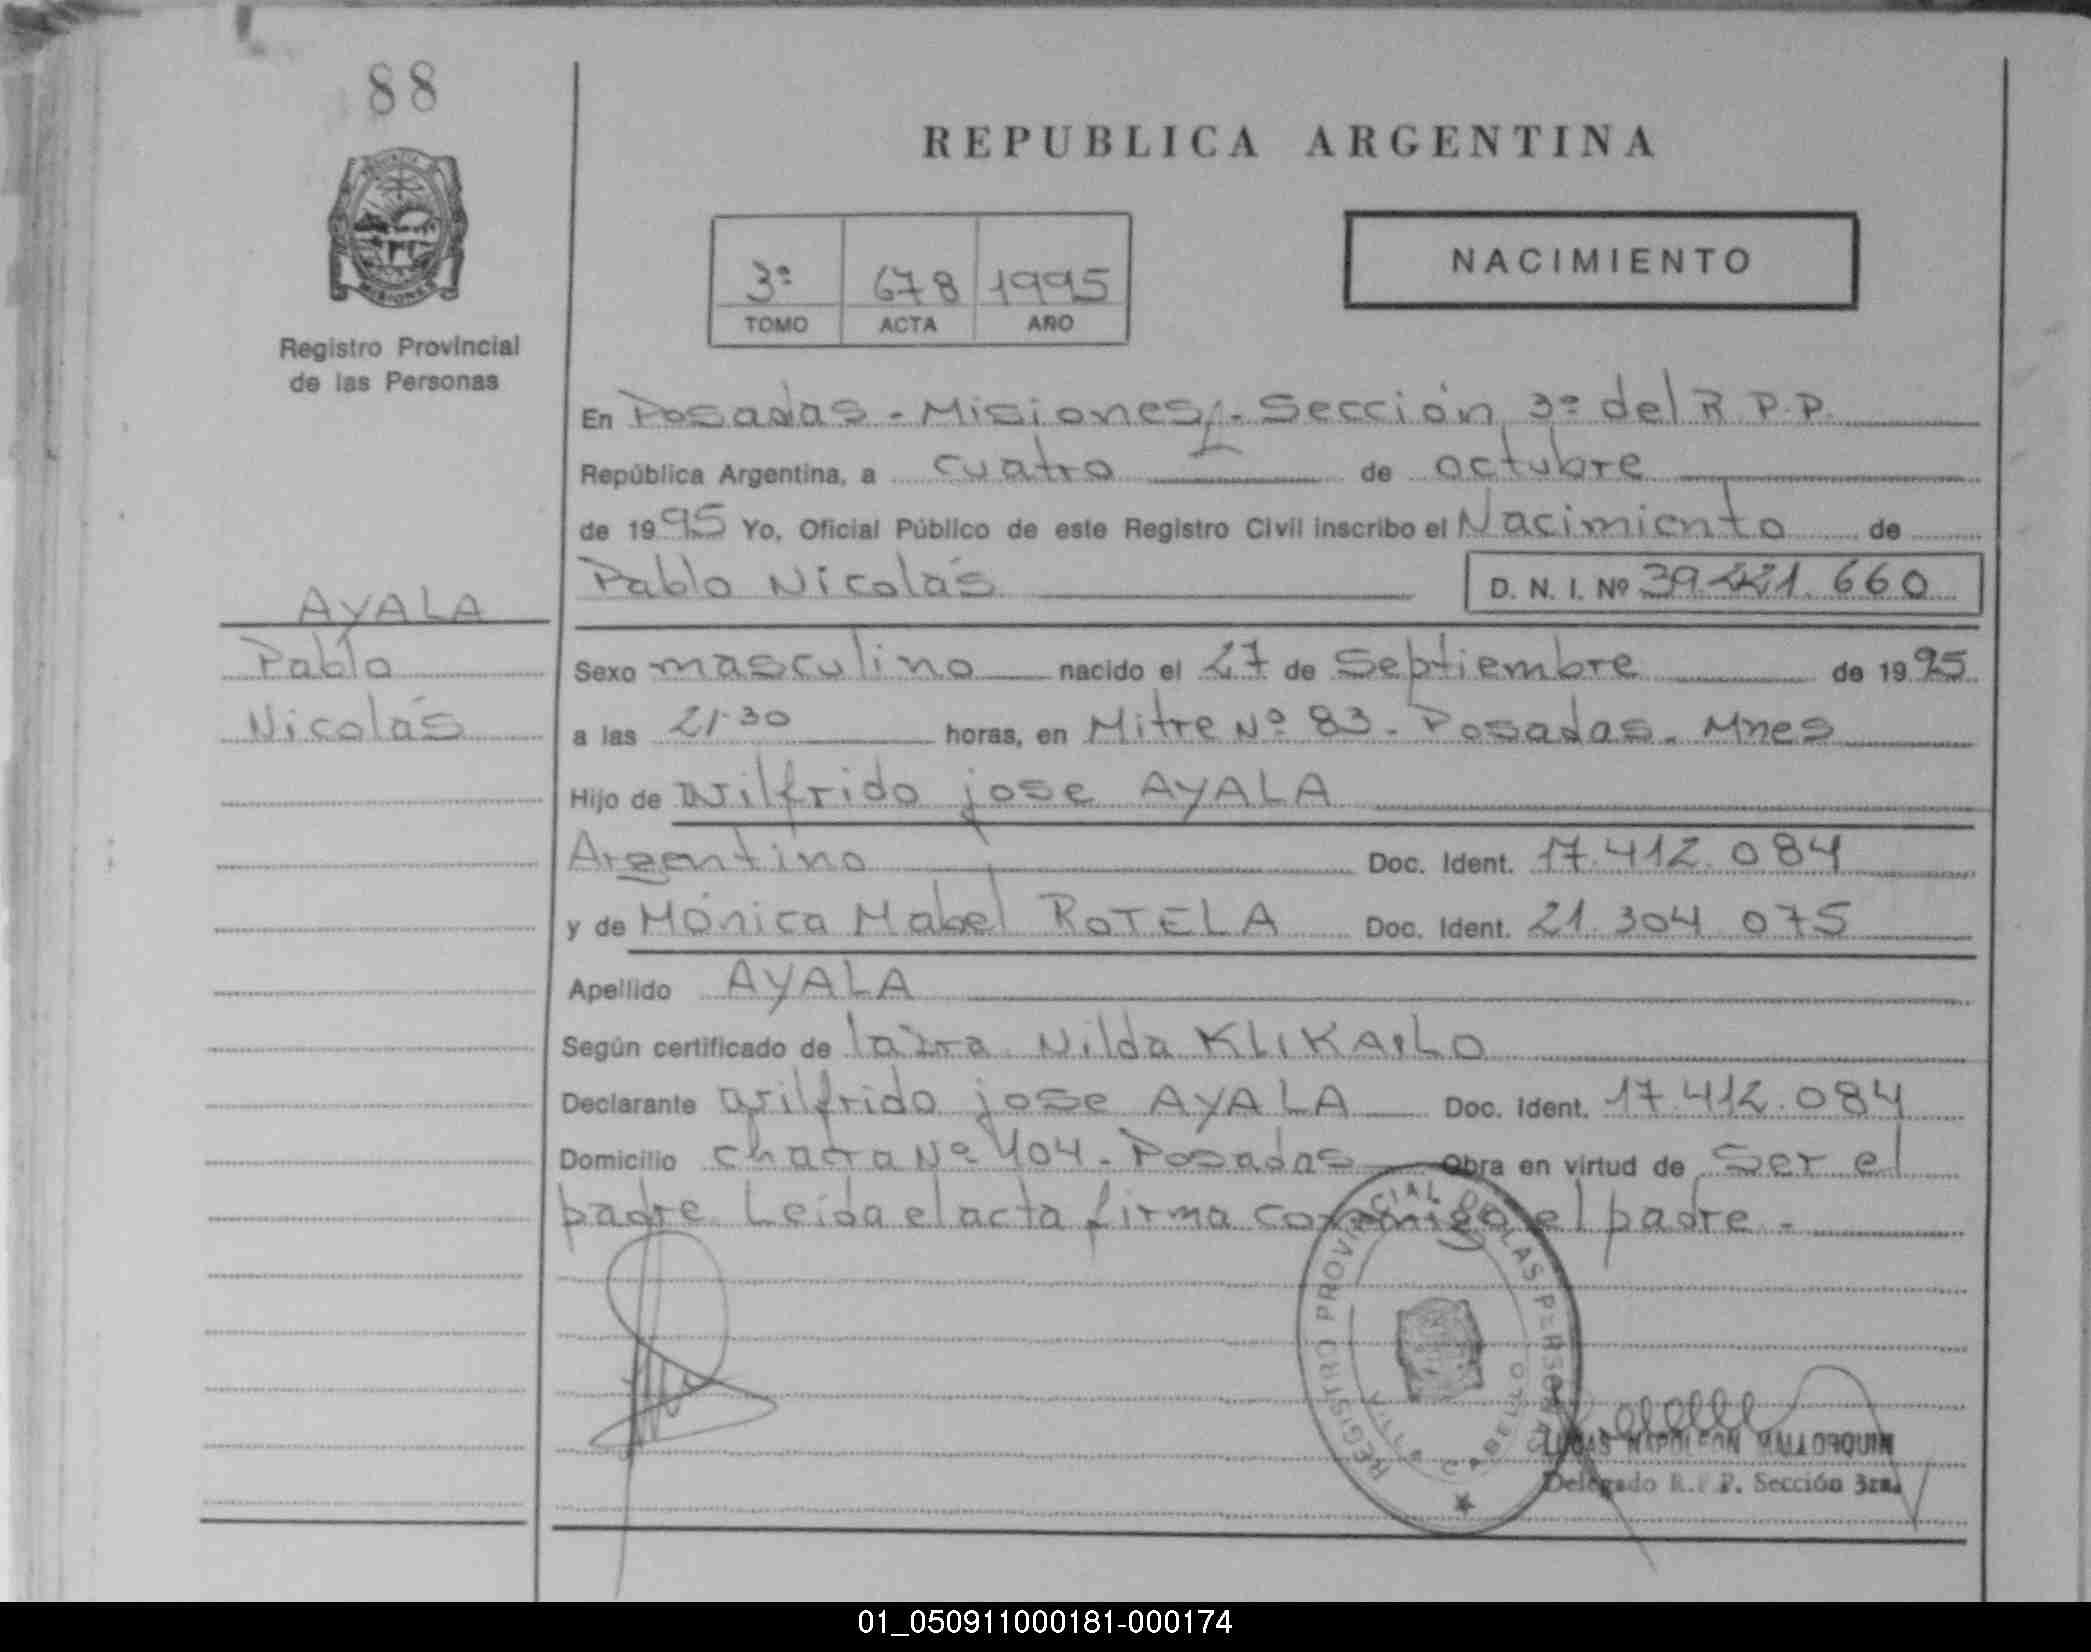 88
REPUBLICA ARGENTINA
NACIMIENTO
3ª 678 1995
TOMO ACTA AÑO
MISIONES
Registro Provincial
de las Personas
En Posadas - Misiones - Sección 3ª del R.P.P.
República Argentina, a cuatro de octubre
de 1995 Yo, Oficial Público de este Registro Civil inscribo el Nacimiento de
Pablo Nicolás D. N. I. Nº 39.221.660
AYALA
Pablo
Nicolás
Sexo masculino nacido el 27 de Septiembre de 1995
a las 21.30 horas, en Mitre Nº 83 - Posadas - Mnes
Hijo de Wilfrido jose AYALA
Argentino Doc. Ident. 17.412.084
y de Mónica Mabel ROTELA Doc. Ident. 21.304.075
Apellido AYALA
Según certificado de la Nilda
Declarante Wilfrido jose AYALA Doc. Ident. 17.412.084
Domicilio chacra Nº 104 - Posadas Obra en virtud de Ser el
padre. Leida el acta firma conmigo el padre -
REGISTRO PROVINCIAL DE LAS PERSONAS
CABELLO
LUCAS NAPOLEON MALLORQUIN
Delegado R.P.P. Sección 3ra.
01_050911000181-000174